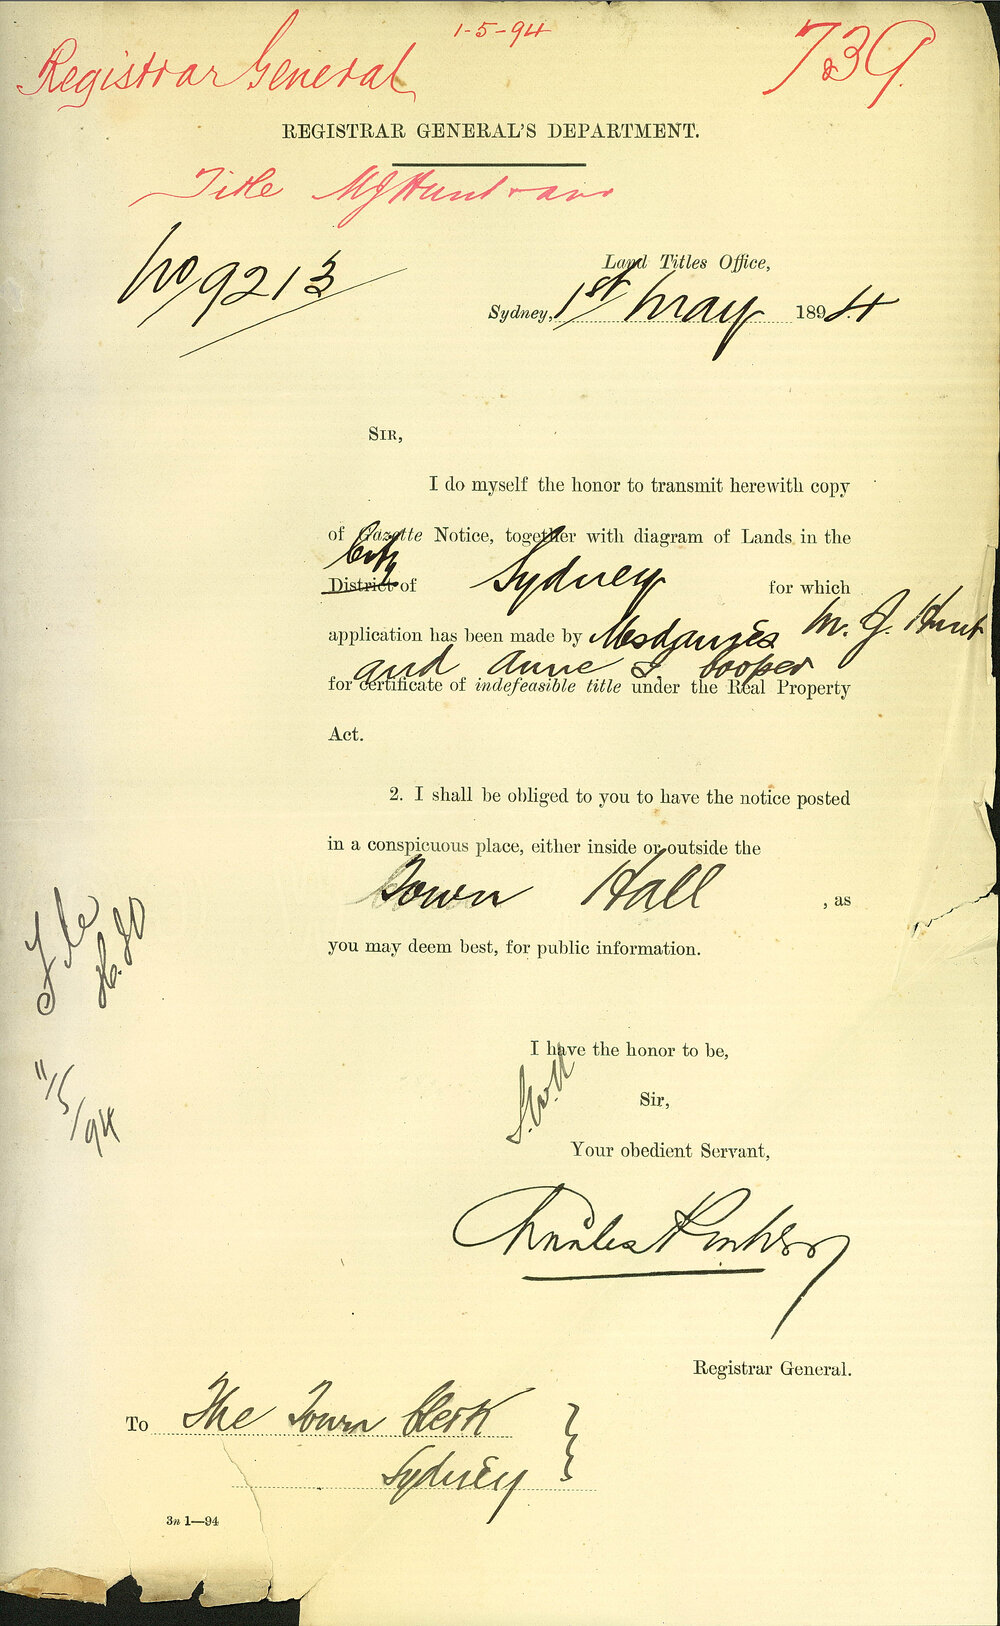 1-5-94
Registrar General
739
REGISTRAR GENERAL'S DEPARTMENT.
Title M J Hunt
No 9213
Land Titles Office,
Sydney, 1st May 1894
SIR,
I do myself the honor to transmit herewith copy
of Gazette Notice, together with diagram of Lands in the
City
District of Sydney for which
application has been made by Mesdames M. J. Hunt
and Anne I. Cooper
for certificate of indefeasible title under the Real Property
Act.
2. I shall be obliged to you to have the notice posted
in a conspicuous place, either inside or outside the
Town Hall , as
you may deem best, for public information.
File
11/5/94
I have the honor to be,
Sir,
Your obedient Servant,
Charles
Registrar General.
To The Town Clerk
Sydney
3n 1—94